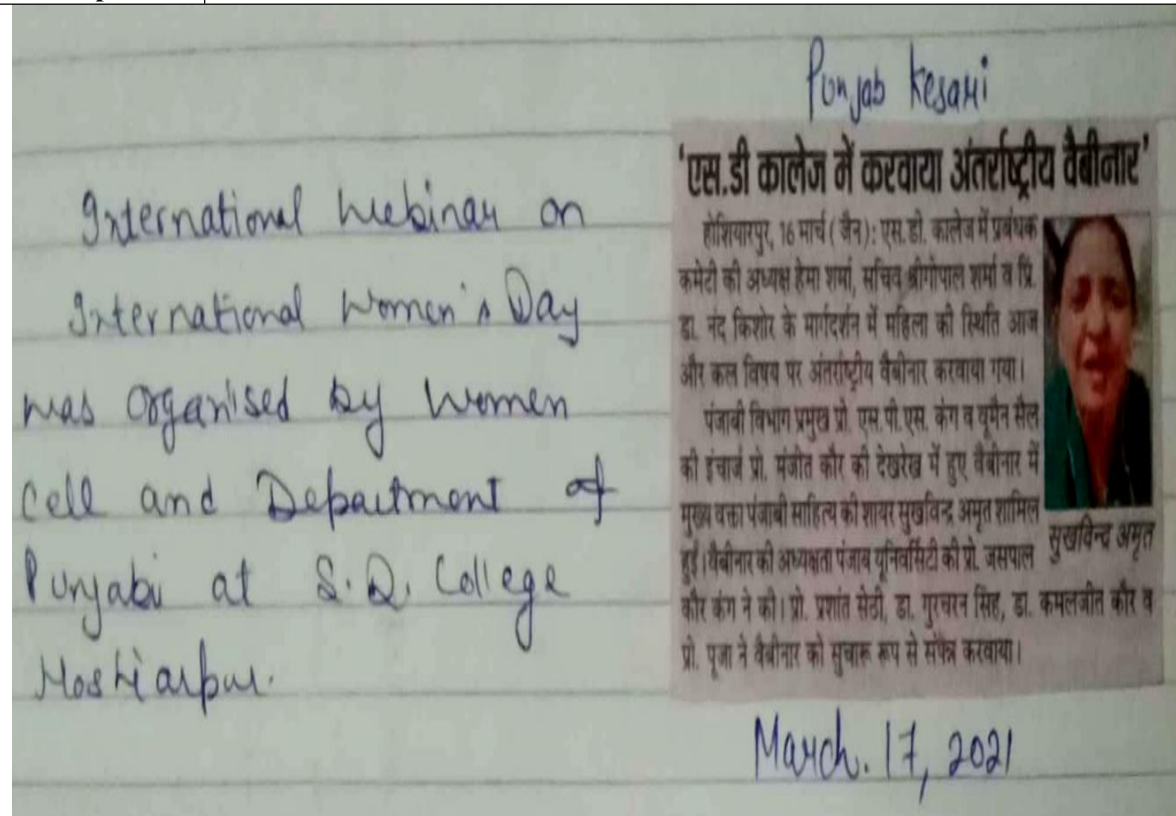 International Webinar on
International Women's Day
was organised by Women
Cell and Department of
Punjabi at S.D. College
Hoshiarpur.
Punjab Kesari
'एस.डी कालेज में करवाया अंतर्राष्ट्रीय वैबीनार'
होशियारपुर, 16 मार्च (जैन): एस.डी. कालेज में प्रबंधक
कमेटी की अध्यक्ष हेमा शर्मा, सचिव श्रीगोपाल शर्मा व प्रिं.
डा. नंद किशोर के मार्गदर्शन में महिला की स्थिति आज
और कल विषय पर अंतर्राष्ट्रीय वैबीनार करवाया गया।
पंजाबी विभाग प्रमुख प्रो. एस.पी.एस. कंग व वूमैन सैल
की इंचार्ज प्रो. मंजीत कौर की देखरेख में हुए वैबीनार में
मुख्य वक्ता पंजाबी साहित्य की शायर सुखविन्द्र अमृत शामिल
हुईं। वैबीनार की अध्यक्षता पंजाब यूनिवर्सिटी की प्रो. जसपाल
कौर कंग ने की। प्रो. प्रशांत सेठी, डा. गुरचरन सिंह, डा. कमलजीत कौर व
प्रो. पूजा ने वैबीनार को सुचारू रूप से संपन्न करवाया।
सुखविन्द्र अमृत
March. 17, 2021